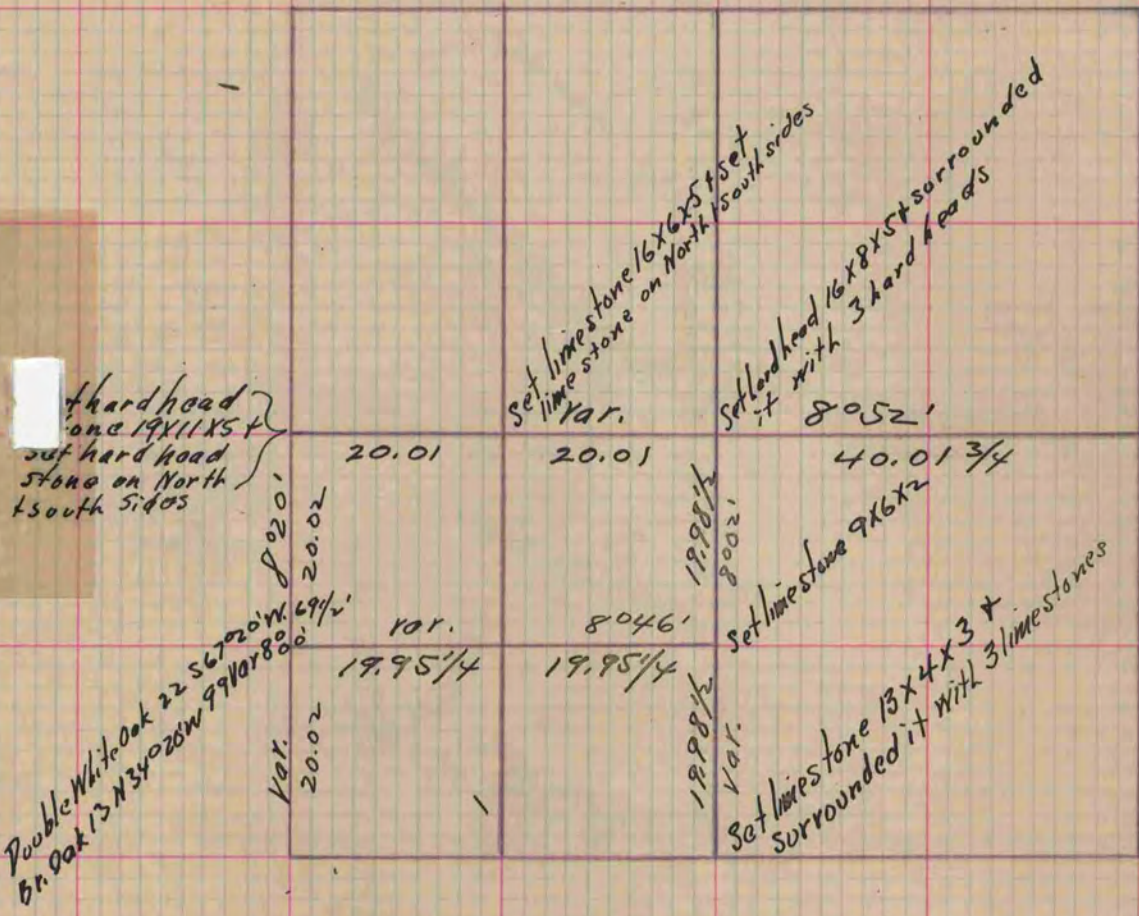 Set limestone 16x6x5 & set
lime stone on North & South sides
Set hard head 16x8x5 & surrounded
it with 3 hard heads
hard head
one 19x11x5 &
set hard head
stone on North
& south sides
Var.
8°52'
20.01
20.01
40.01 3/4
8°20'
20.02
19.98 1/2
8°02'
Set limestone 9x6x2
Var.
8°46'
19.95 1/4
19.95 1/4
Double White Oak 22 S67°20'W. 69 1/2'
Br. Oak 13 N34°20'W 99 Var 8°00'
Var.
20.02
19.98 1/2
Var.
Set limestone 13x4x3 &
surrounded it with 3 limestones